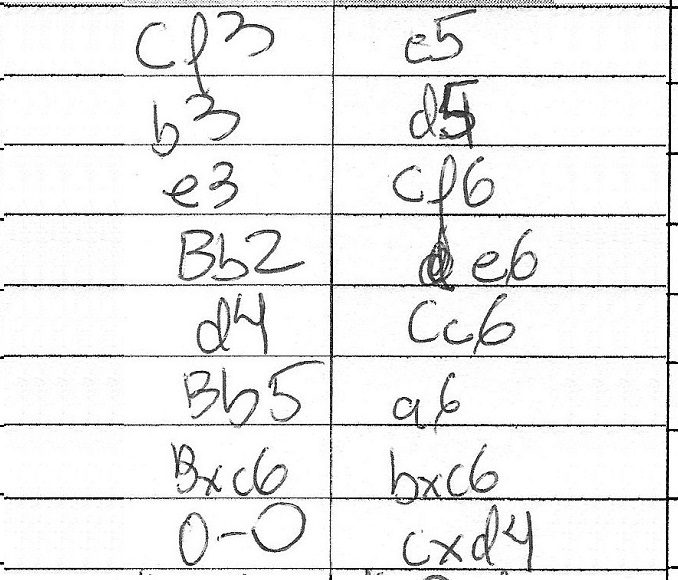 Cf3 e5
b3 d5
e3 Cf6
Bb2 e6
d4 Cc6
Bb5 a6
Bxc6 bxc6
0-0 cxd4